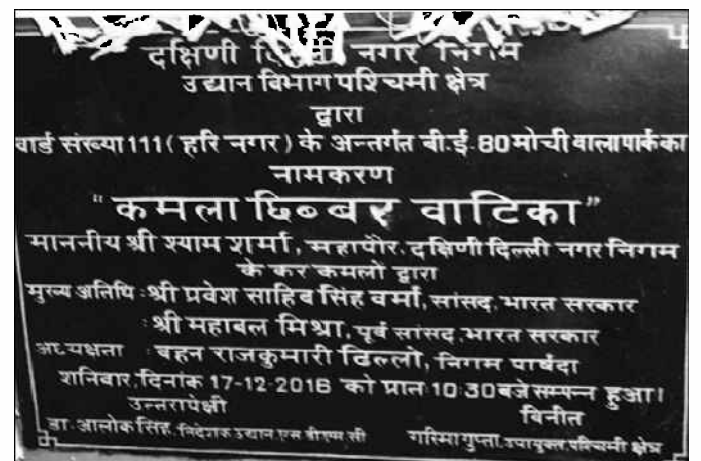 दक्षिणी दिल्ली नगर निगम
उद्यान विभाग पश्चिमी क्षेत्र
द्वारा
वार्ड संख्या 111( हरि नगर ) के अन्तर्गत बी.ई. 80 मोची वाला पार्क का
नामकरण
"कमला छिब्बर वाटिका"
माननीय श्री श्याम शर्मा, महापौर, दक्षिणी दिल्ली नगर निगम
के कर कमलों द्वारा
मुख्य अतिथि : श्री प्रवेश साहिब सिंह वर्मा, सांसद, भारत सरकार
: श्री महाबल मिश्रा, पूर्व सांसद, भारत सरकार
अध्यक्षता : बहन राजकुमारी ढिल्लो, निगम पार्षदा
शनिवार, दिनांक 17-12-2016 को प्रात 10:30 बजे सम्पन्न हुआ।
उत्तरापेक्षी
विनीत
डा. आलोक सिंह, निदेशक उद्यान, एस डी एम सी
गरिमा गुप्ता, उपायुक्त, पश्चिमी क्षेत्र